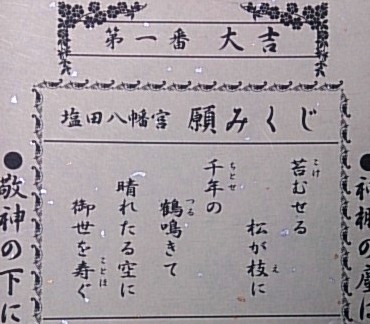 第一番 大吉
塩田八幡宮 願みくじ
苔むせる
松が枝に
千年の
鶴鳴きて
晴れたる空に
御世を寿ぐ
こけ
え
ちとせ
つる
ことほ
●敬神の下に